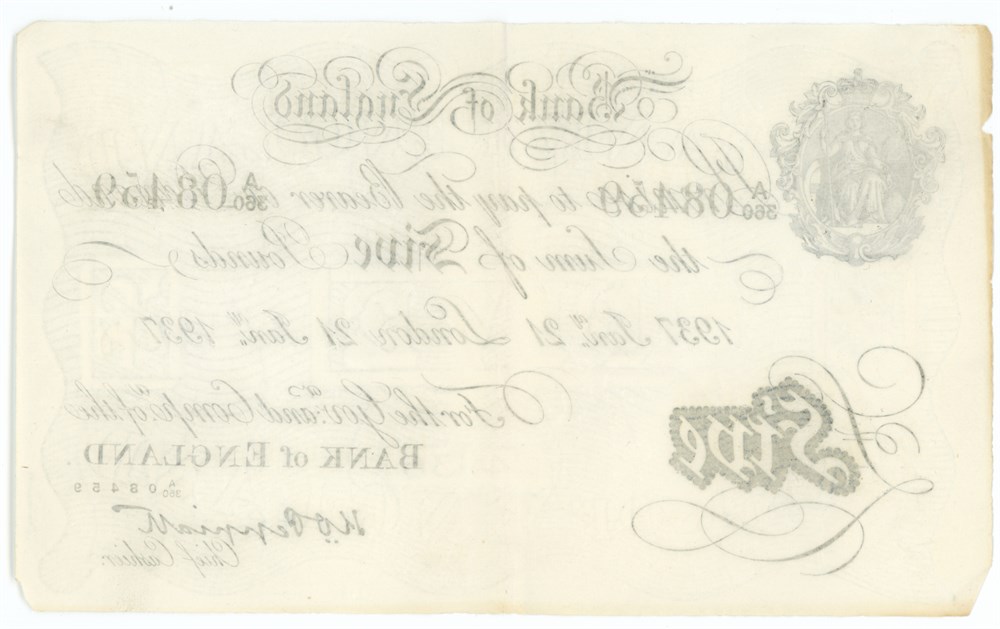 Bank of England
A/360 08459 to pay the Bearer on Demand A/360 08459
the Sum of Five Pounds
1937 Jany. 21 London 21 Jany. 1937
For the Govr. and Compa. of the
BANK of ENGLAND.
A/360 08459
K.O. Peppiatt
Chief Cashier.
£Five